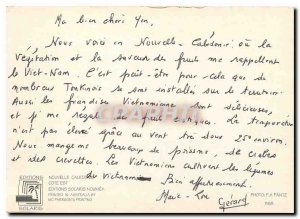 Ma bien chère Yen,
Nous voici en Nouvelle Calédonie où la
végétation et la saveur des fruits me rappellent
le Viet-Nam. C'est peut-être pour cela que de
nombreux Tonkinois se sont installés sur le territoire.
Aussi les frangines Vietnamiennes sont délicieuses,
et je me régale de fruits exotiques. La température
n'est pas élevée grâce au vent très doux 25° environ.
Nous mangeons beaucoup de poissons, de crabes
et des crevettes. Les Vietnamiens cultivent les légumes
du vietnam
Bien affectueusement.
Marie-
Gérard
EDITIONS
SOLARIS
NOUVELLE CALEDONIE
COTE EST
EDITIONS SOLARIS NOUMEA
PRINTED IN AUSTRALIA BY
PHOTO P.A. PANTZ